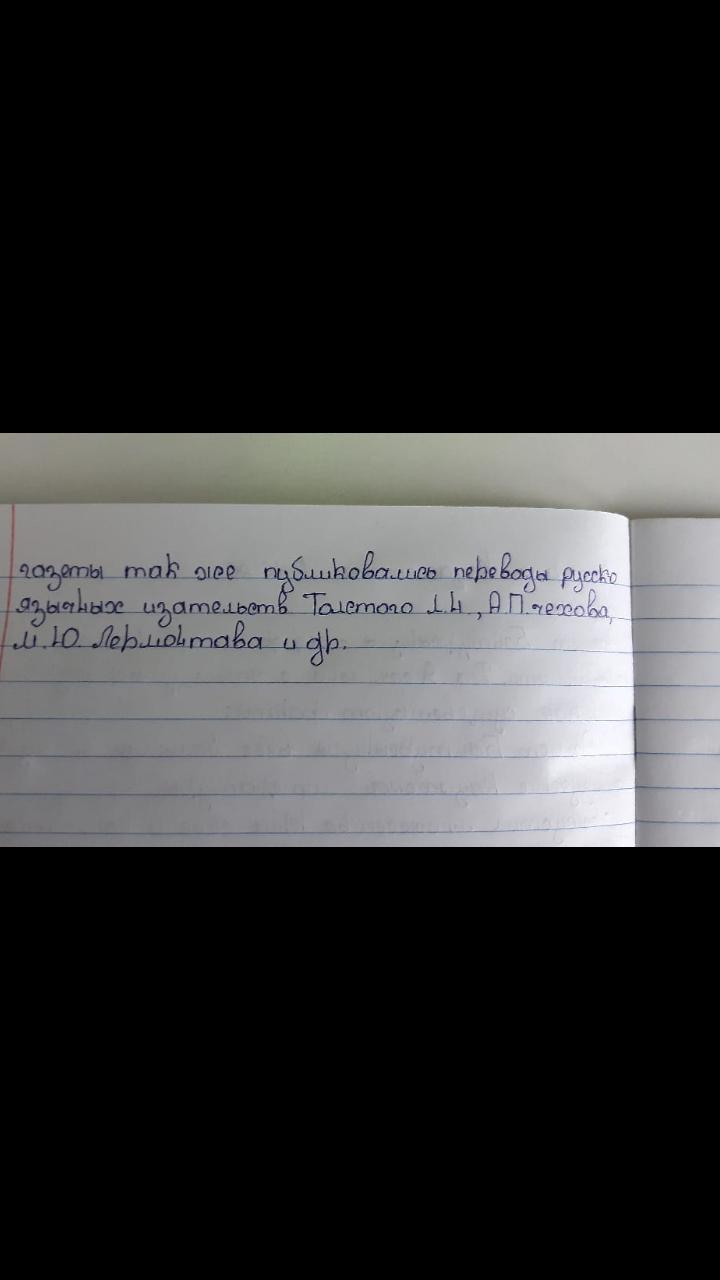 газеты так жее публиковались переводы русско
язычных изательств Толстого Л.Н., А.П.чехова,
М.Ю. Лермонтава и др.